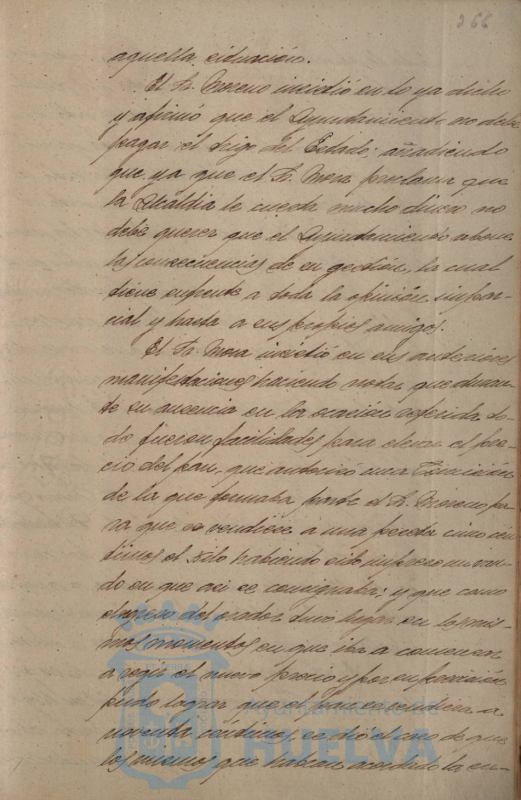 366
aquella situación.
El Sr. Moreno insistió en lo ya dicho
y afirmó que el Ayuntamiento no debe
pagar el trigo del Estado; añadiendo
que ya que el Sr. Mora proclama que
la Alcaldía le cuesta mucho dinero no
debe querer que el Ayuntamiento abone
las consecuencias de su gestión, la cual
tiene enfrente a toda la opinión impar-
cial y hasta a sus propios amigos.
El Sr. Mora insistió en sus anteriores
manifestaciones haciendo notar que duran-
te su ausencia en la ocasión referida to-
do fueron facilidades para elevar el pre-
cio del pan, que autorizó una Comisión
de la que formaba parte el Sr. Moreno pa-
ra que se vendiese a una peseta cinco cén-
timos el kilo habiendo sido impreso un ban-
do en que así se consignaba; y que como
el regreso del orador tuvo lugar en los mis-
mos momentos en que iba a comenzar
a regir el nuevo precio y por su
pudo lograr que el pan se vendiera a
noventa céntimos, se dió el caso de que
los mismos que habían acordado la su-
Ayuntamiento de
HUELVA